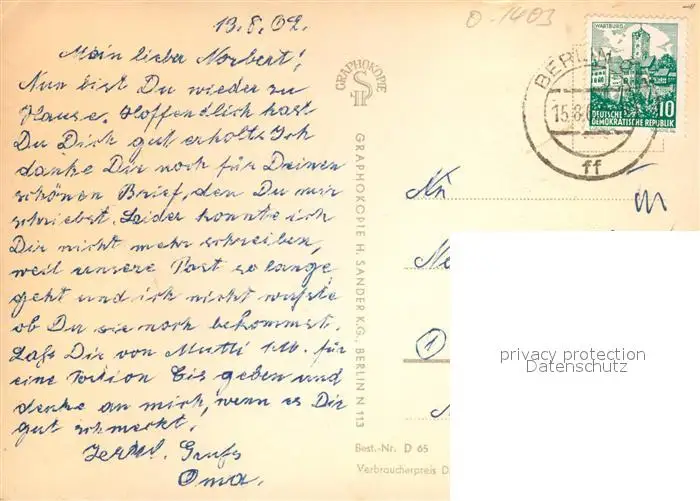 13.8.62.
Mein lieber Norbert!
Nun bist Du wieder zu
Hause. Hoffendlich hast
Du Dich gut erholt. Ich
danke Dir noch für Deinen
schönen Brief, den Du mir
schriebst. Leider konnte ich
Dir nicht mehr schreiben,
weil unsere Post so lange
geht und ich nicht wußte
ob Du sie noch bekommst.
Laß Dir von Mutti 1M. für
eine Portion Eis geben und
denke an mich, wenn es Dir
gut schmeckt.
Herzl. Gruß
Oma.
GRAPHOKOPIE
GRAPHOKOPIE H. SANDER K.G., BERLIN N 113
Best.-Nr. D 65
Verbraucherpreis D
0-1403
WARTBURG
10
DEUTSCHE
DEMOKRATISCHE REPUBLIK
BERLIN
15.8.
ff
1
privacy protection
Datenschutz